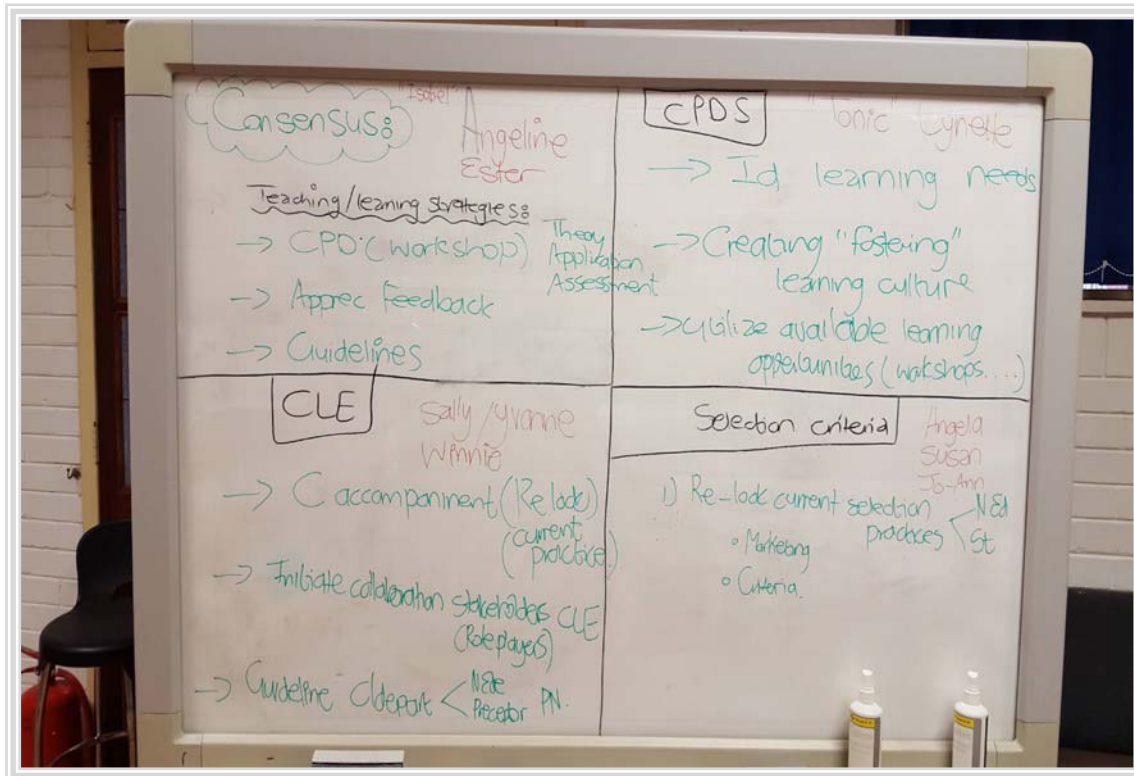 Consensus:
"Isabel"
Angeline
Ester
Teaching/learning strategies:
→ CPD: (workshop)
Theory
Application
Assessment
→ Apprec Feedback
→ Guidelines
CPDS
"Tonic" Lynette
→ Id learning needs
→ Creating "fostering"
learning culture
→ Utilize available learning
opportunities (workshops....)
CLE
Sally/Yvonne
Winnie
→ C accompaniment (Re look)
(current
practice)
→ Initiate collaboration stakeholders CLE
(Role players)
→ Guideline
Preceptor PN.
Selection criteria
Angela
Susan
Jo-Ann
1) Re-look current selection
practices < NEd
St
• Marketing
• Criteria.